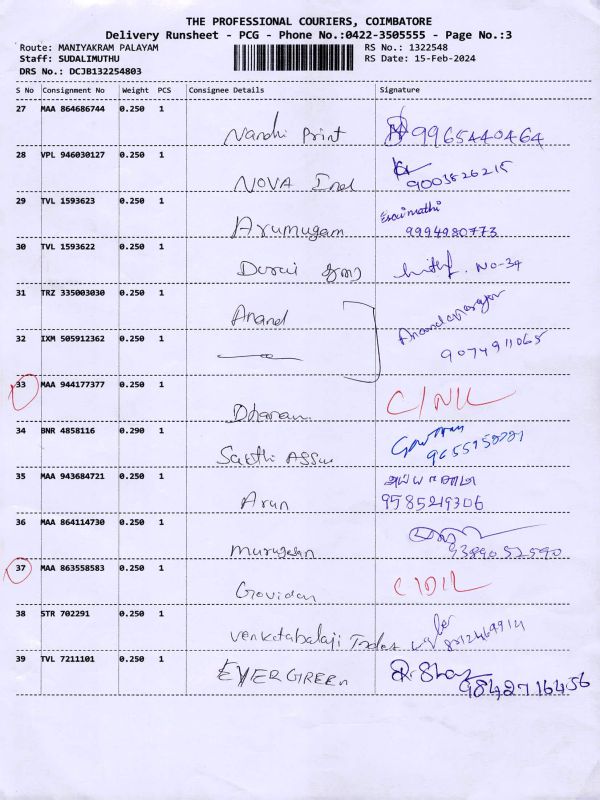 THE PROFESSIONAL COURIERS, COIMBATORE
Delivery Runsheet - PCG - Phone No.:0422-3505555 - Page No.:3
Route: MANIYAKRAM PALAYAM RS No.: 1322548
Staff: SUDALIMUTHU RS Date: 15-Feb-2024
DRS No.: DCJB132254803
S No Consignment No Weight PCS Consignee Details Signature
27 MAA 864686744 0.250 1
Nandhi Print 9965440464
28 VPL 946030127 0.250 1
NOVA Ind 9003826215
29 TVL 1593623 0.250 1
Arumugam 9994980773
30 TVL 1593622 0.250 1
Durai No-34
31 TRZ 335003030 0.250 1
Anand
32 IXM 505912362 0.250 1
9074911065
33 MAA 944177377 0.250 1
Dharan
34 BNR 4858116 0.290 1
Sakthi
35 MAA 943684721 0.250 1
Arun 9585219306
36 MAA 864114730 0.250 1
Murugan 9389052590
37 MAA 863558583 0.250 1
Govindan
38 STR 702291 0.250 1
Venkatabalaji
39 TVL 7211101 0.250 1
EVERGREEn 9842716456